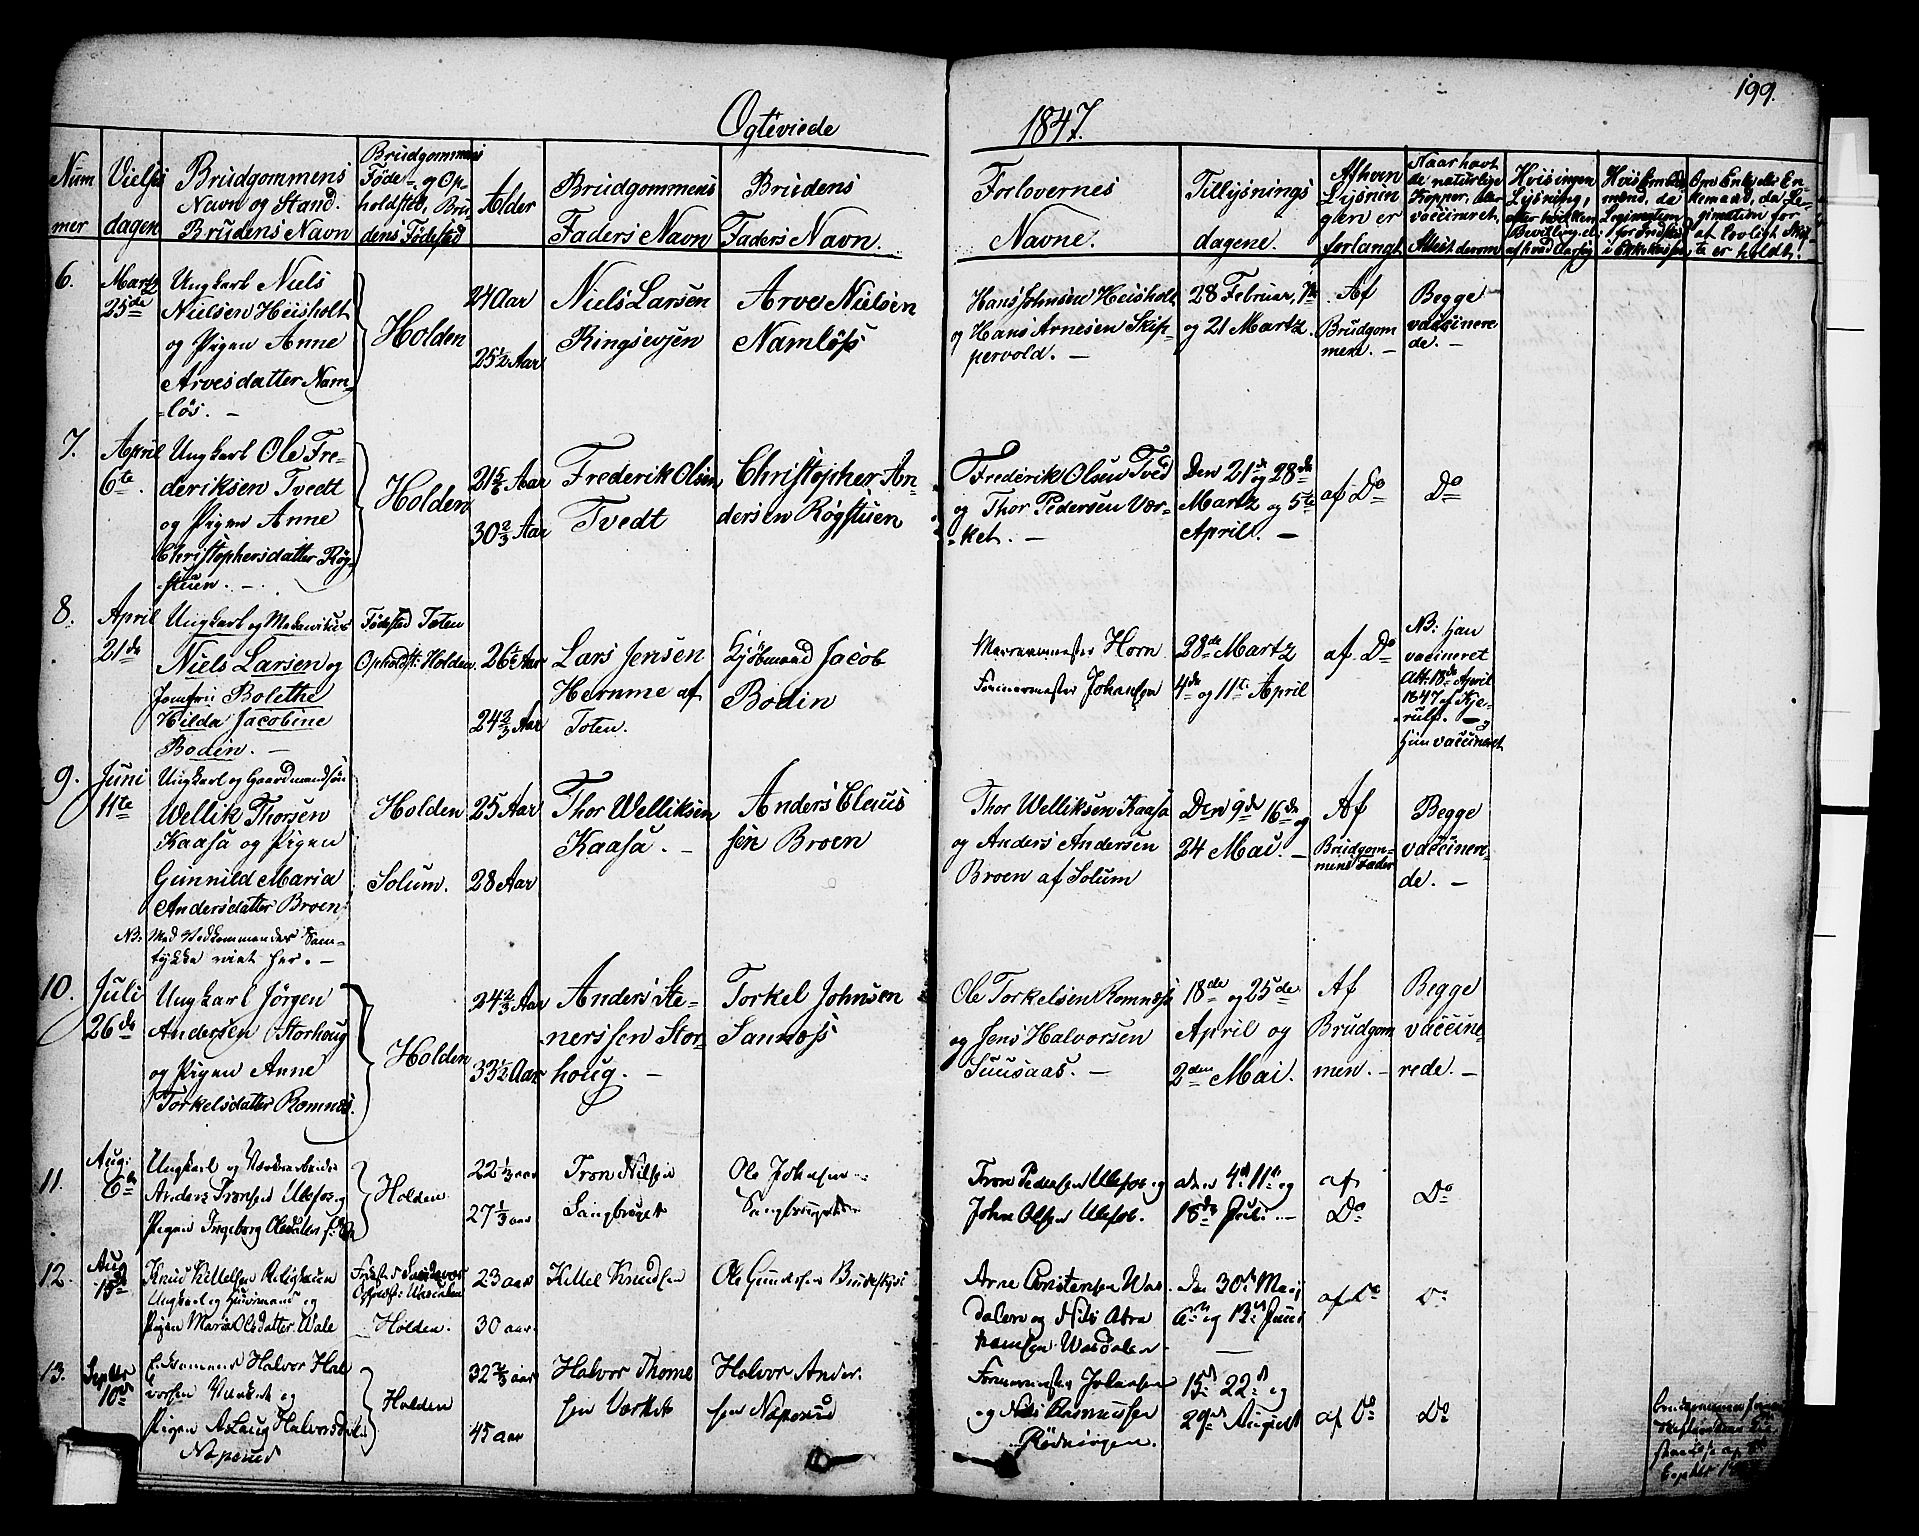 199.
Ogteviede 1847.
Num mer
Vielses dagen
Brudgommens Navn og Stand. Brudens Navn
Brudgommens Føde- og Opholdsted, Brudens Fødested
Alder
Brudgommens Faders Navn
Brudens Faders Navn.
Forlovernes Navne.
Tillysnings dagene.
Af hvem Lysningen er forlangt
Naar havt de naturlige Kopper, eller vaccineret, Attest derom
Hvis ingen Lysning, efter hvilken Bevilling el. af hvad Aarsag
6.
Martz 25de
Ungkarl Niels
Nielsen Heisholt
og Pigen Anne
Arvesdatter Nam-
løs. -
Holden
24 Aar
25½ Aar
Niels Larsen
Ringsevjen
Arve Nielsen
Namløss
Hans Johnsen Heisholt
og Hans Arnesen Skip-
pervold. -
28 Februar, 7de
og 21 Martz.
Af
Brudgom
men. -
Begge
vaccinere
de. -
7.
April 6te.
Ungkarl Ole Fre-
deriksen Tvedt
og Pigen Anne
Christophersdatter Røg-
stuen. -
Holden
21 5/6 Aar
30 2/3 Aar
Frederik Olsen
Tvedt
Christopher An-
dersen Røgstuen
Frederik Olsen Tved
og Thor Pedersen Vær-
ket. -
Den 21de og 28de
Martz og 5te
April. -
af Do
Do
8.
April 21de
Ungkarl og Mekanikus
Niels Larsen og
Jomfru Bolethe
Hilda Jacobine
Bodin. -
Fødested Toten
Opholdst: Holden.
26½ Aar
24 2/3 Aar
Lars Jensen
Hernme af
Toten.
Kjøbmand Jacob
Bodin
Masovnmester Horn
Formermester Johansen
28de Martz
4de og 11te April
af Do
NB: Han
vaccineret
Att: 18de April
1847 af Kje-
rulf. - og
Hun vaccineret
9.
Juni 11te
Ungkarl og Gaardmandssøn
Wellik Thorsen
Kaasa og Pigen
Gunnild Maria
Andersdatter Broen
NB: Med Vedkommendes Sam-
tykke viet her. -
Holden
Solum.
25 Aar
28 Aar
Thor Welliksen
Kaasa. -
Anders Claus
sen Broen
Thor Welliksen Kaasa
og Anders Andersen
Broen af Solum
Den 9de 16de og
24 Mai. -
Af
Brudgom-
mens Fader
Begge
vacciner-
de. -
10.
Juli 26de
Ungkarl Jørgen
Andersen Storhoug
og Pigen Anne
Torkelsdatter Romnes.
Holden
24 2/3 Aar
33½ Aar
Anders Ste-
nerssen Stor-
houg. -
Torkel Johnsen
Sannøss
Ole Torkelsen Romnøss
og Jens Halvorsen
Suusaas. -
18de og 25de
April og
2den Mai.
Af
Brudgom
men. -
Begge
vaccine-
rede. -
11.
Aug: 6te
Ungkarl og Værksarbeider
Anders Tronsen Ulefos og
Pigen Ingeborg Olesdatter
Holden
22 1/3 aar
27 1/3 aar
Tron Nilsen
Ole Johnsen
Tron Pedersen Ulefos og
John Olsen Ulefos.
den 4de 11te og
18de Juli. -
af
Do
Do
12.
Aug
Knud Kittelsen
Ungkarl og Huusmand og
Pigen Maria Olsdatter Wale
Holden.
23 aar
30 aar.
Kittel Knudsen
Ole Gundersen
Arne Christensen Was
dalen og Nils Abra
hamsen Wasdalen.
den 30te Maij
6te og 13de Juni
af Do
Do
13.
Septbr 10de
Enkemand Halvor Hal
vorsen Værket og
Pigen Aslaug Halvorsdatter
Napsrud
Holden
32 2/3 aar
45 aar
Halvor Thome
sen Værket
Halvor Ander.
sen Napsrud
Formermester Johansen
og Nils Rasmussen
15de 22de og
29de August
af Do
Do